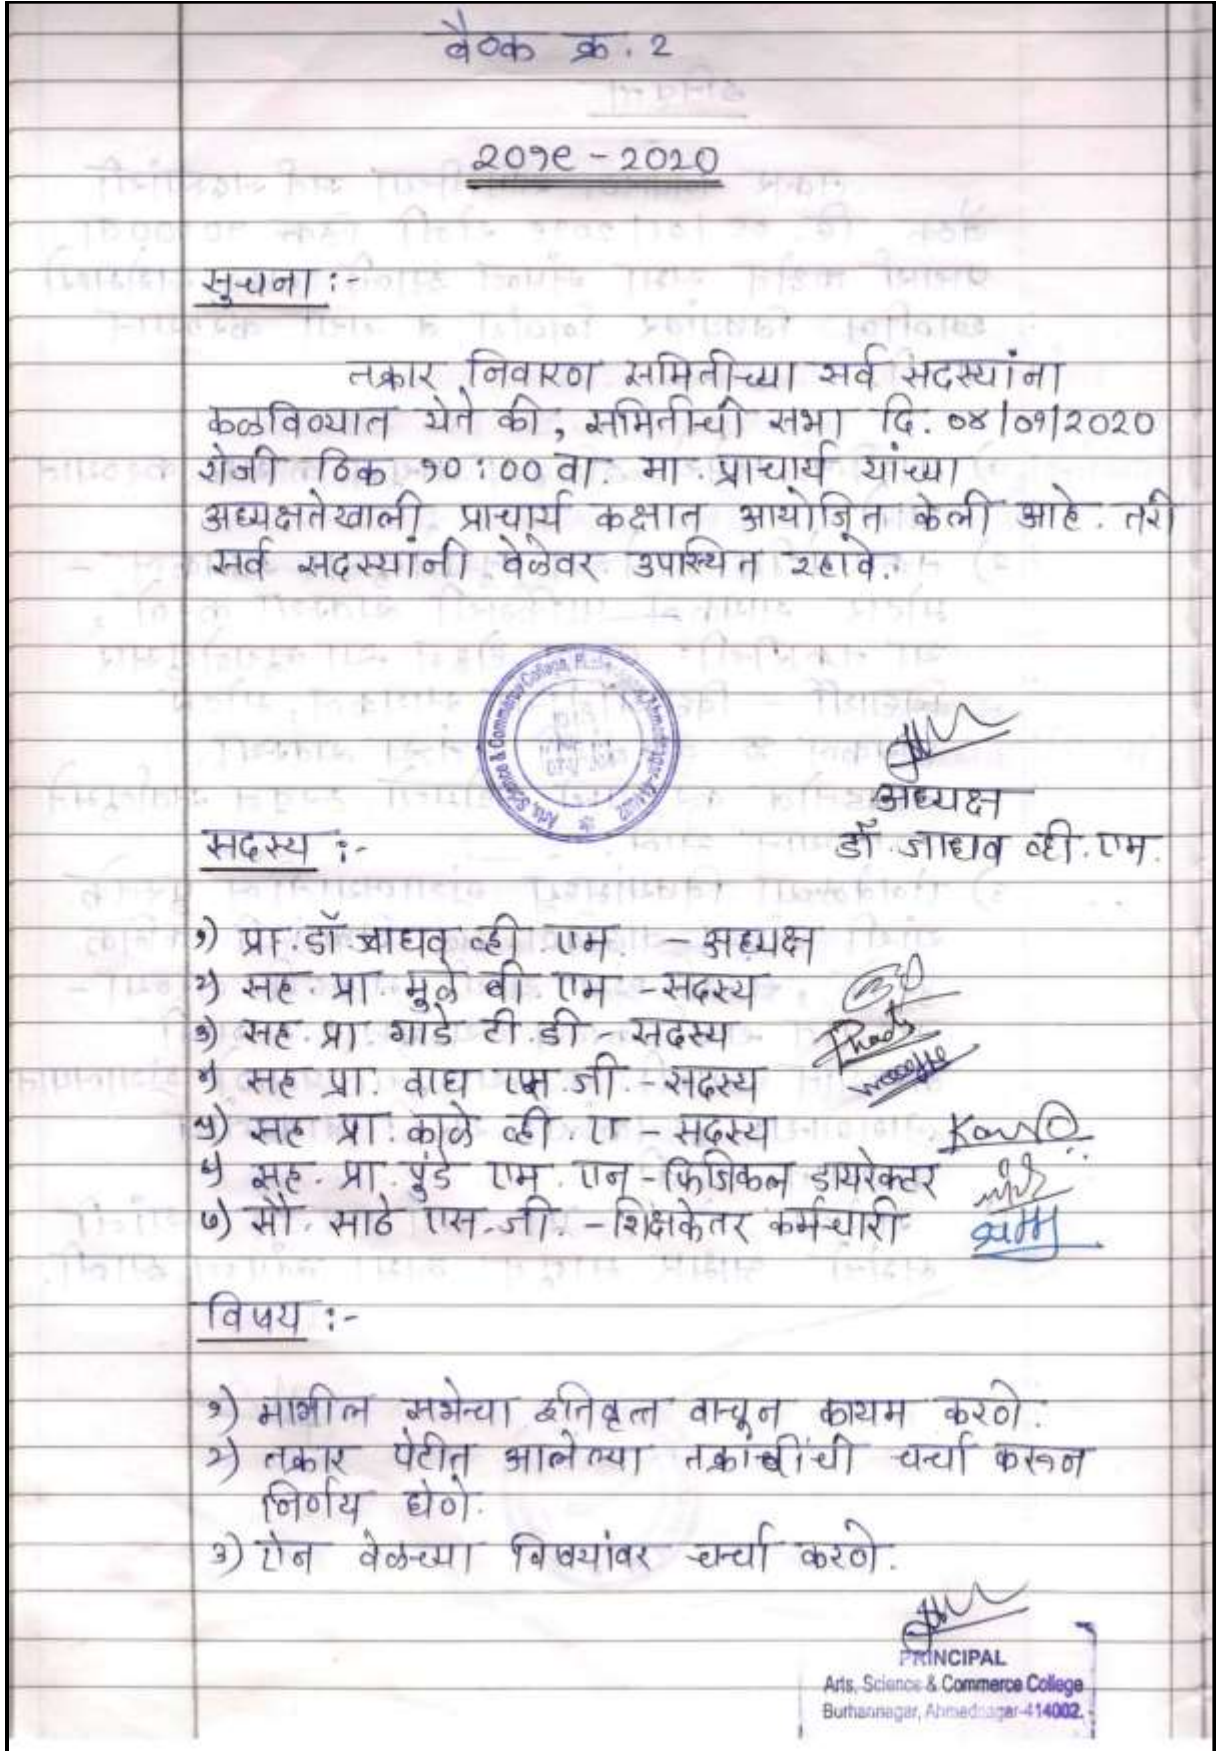 बैठक क्र. २
२०१९ - २०२०
सुचना :-
तक्रार निवारण समितीच्या सर्व सदस्यांना
कळविण्यात येते की, समितीची सभा दि. ०४/०१/२०२०
रोजी ठिक १०:०० वा. मा. प्राचार्य यांच्या
अध्यक्षतेखाली प्राचार्य कक्षात आयोजित केली आहे. तरी
सर्व सदस्यांनी वेळेवर उपस्थित रहावे.
Arts, Science & Commerce College,
अध्यक्ष
डॉ. जाधव व्ही. एम.
सदस्य :-
१) प्रा. डॉ. जाधव व्ही. एम. - अध्यक्ष
२) सह. प्रा. मुळे बी एम - सदस्य
३) सह. प्रा. गाडे टी. डी - सदस्य
४) सह प्रा. वाघ एम. जी. - सदस्य
५) सह प्रा. काळे व्ही. ए - सदस्य
६) सह. प्रा. पुंडे एम. एन - फिजिकल डायरेक्टर
७) सौ. साठे एस. जी. - शिक्षकेतर कर्मचारी
विषय :-
१) मागील सभेचा इतिवृत्त वाचून कायम करणे.
२) तक्रार पेटीत आलेल्या तक्रारींची चर्चा करून
निर्णय घेणे.
३) ऐन वेळच्या विषयांवर चर्चा करणे.
PRINCIPAL
Arts, Science & Commerce College
Burhannagar, Ahmednagar-414002.